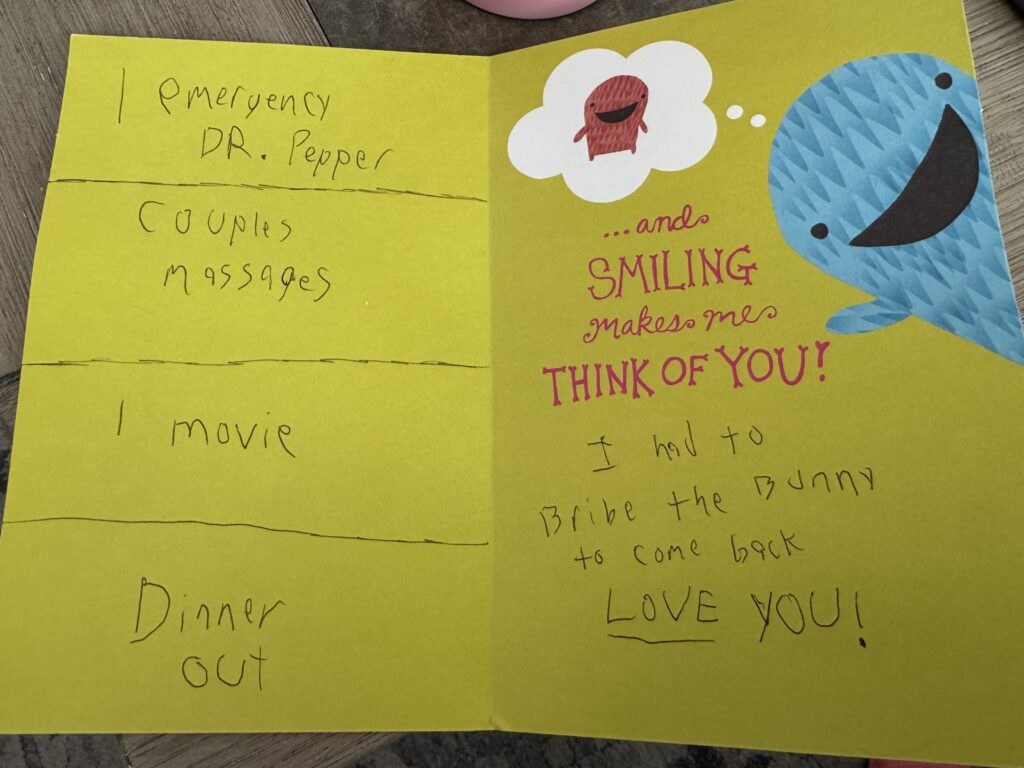 1 emergency
DR. Pepper
Couples
massages
1 movie
Dinner
out
...and
SMILING
makes me
THINK OF YOU!
I had to
Bribe the Bunny
to come back
LOVE YOU!